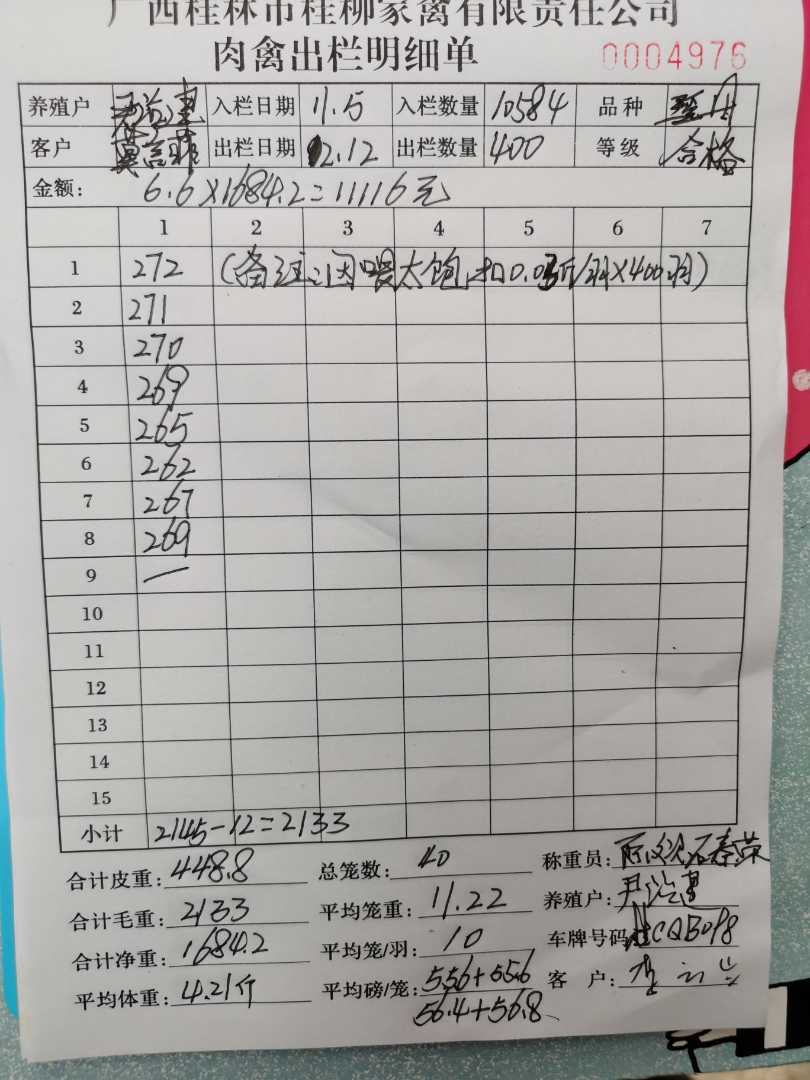 广西桂林市桂柳家禽有限责任公司
肉禽出栏明细单 0004976
养殖户 入栏日期 11.5 入栏数量 10584 品种
客户 出栏日期 12.12 出栏数量 400 等级 合格
金额: 6.6×1684.2=11116元
1 2 3 4 5 6 7
1 272 (备注:因喂太饱,扣0.03斤/羽×400羽)
2 271
3 270
4 269
5 265
6 262
7 267
8 269
9 —
10
11
12
13
14
15
小计 2145-12=2133
合计皮重: 448.8 总笼数: 40 称重员:
合计毛重: 2133 平均笼重: 11.22 养殖户:
合计净重: 1684.2 平均笼/羽: 10 车牌号码
平均体重: 4.21斤 平均磅/笼: 55.6+55.6 客户:
56.4+56.8